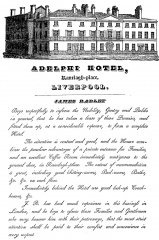 ADELPHI HOTEL,
Ranelagh-place,
LIVERPOOL.
JAMES RADLEY
Begs respectfully to inform the Nobility, Gentry and Public
in general, that he has taken a lease of these Premises, and
fitted them up, at a considerable expense, to form a complete
Hotel.
The situation is central and good, and the House has
been the peculiar advantage of a private entrance for Families,
and an excellent Coffee Room immediately contiguous to the
ground door, in Ranelagh-place. The extent of accommodation
is great, including good Sitting-rooms, Bed-rooms, Baths,
&c. &c. on each floor.
Immediately behind the Hotel are good lock-up Coach-
houses, &c.
J. R. has had much experience in this business in
London, and he begs to assure those Families and Gentlemen
who may honour him with their patronage, that the most strict
attention shall be paid to their comfort and convenience in
every respect.